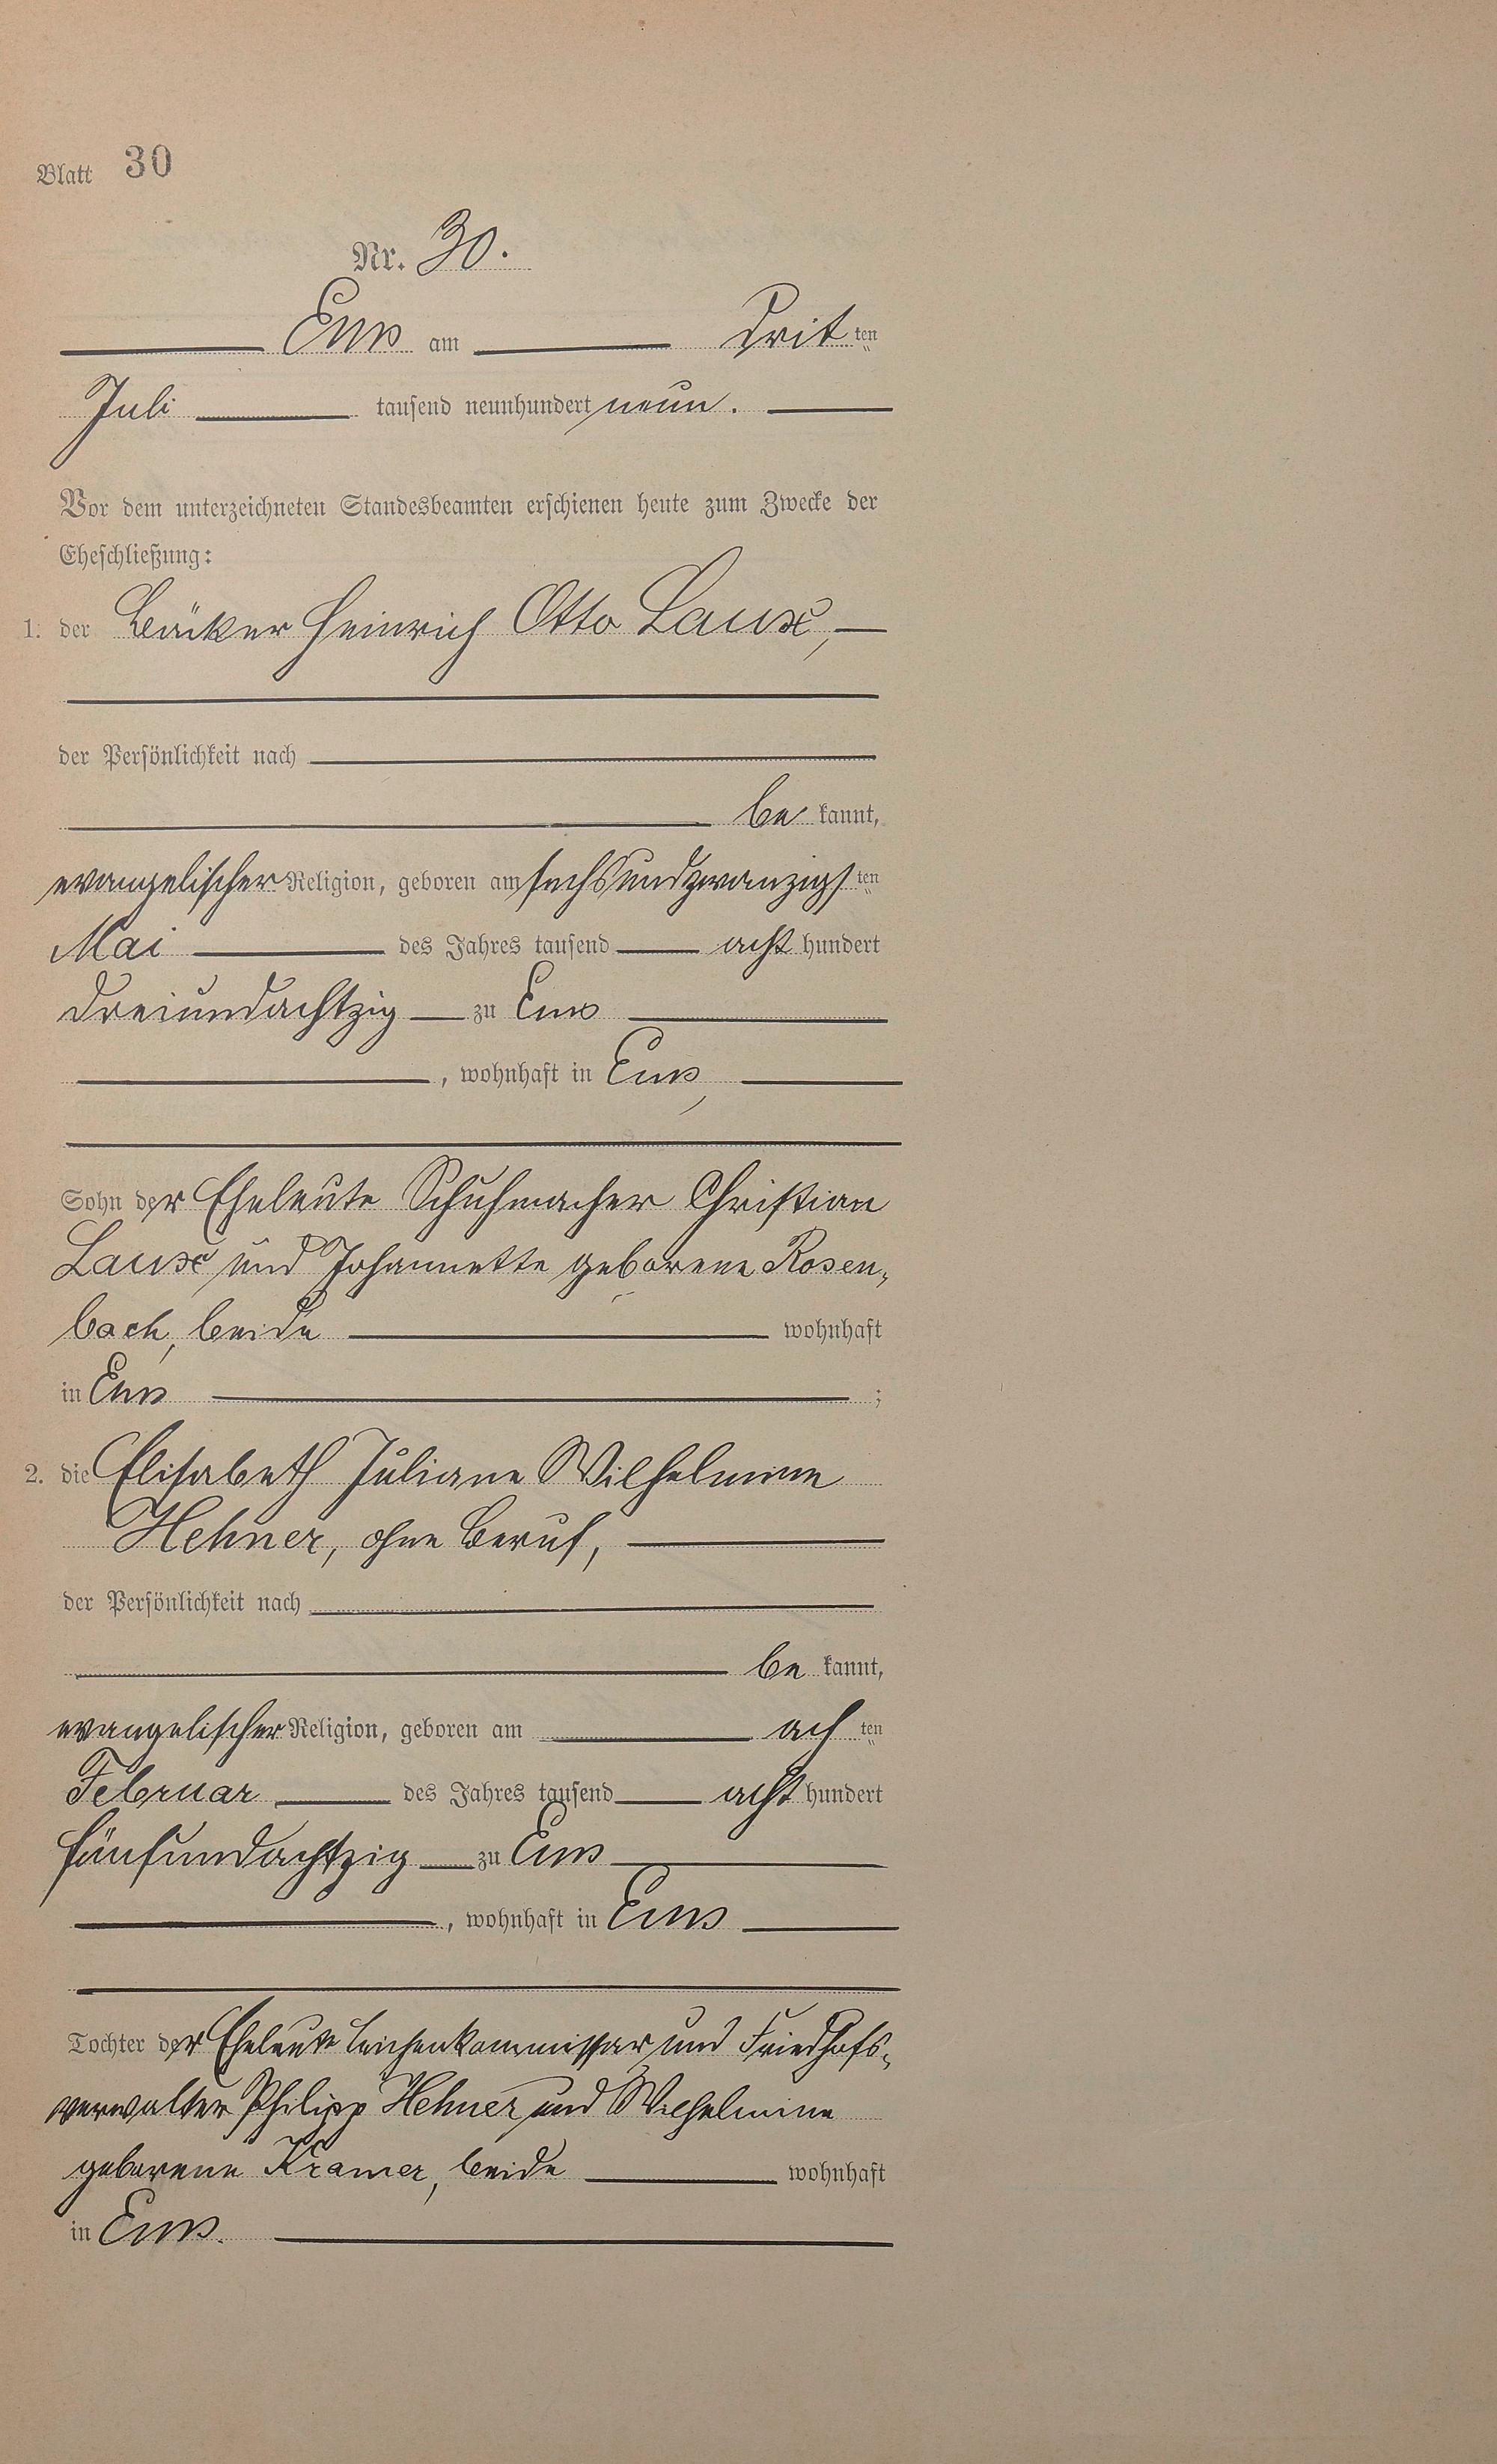 Blatt 30
Nr. 30.
Ems am Dritten
Juli tausend neunhundert neun.
Vor dem unterzeichneten Standesbeamten erschienen heute zum Zwecke der
Eheschließung:
1. der Bäcker Heinrich Otto Laux,
der Persönlichkeit nach
bekannt,
evangelischer Religion, geboren am sechsundzwanzigsten
Mai des Jahres tausend acht hundert
dreiundachtzig zu Ems
, wohnhaft in Ems,
Sohn der Eheleute Schuhmacher Christian
Laux und Johannette geborene Rosen-
bach, beide wohnhaft
in Ems ;
2. die Elisabeth Juliane Wilhelmine
Hehner, ohne Beruf,
der Persönlichkeit nach
bekannt,
evangelischer Religion, geboren am achten
Februar des Jahres tausend acht hundert
fünfundachtzig zu Ems
, wohnhaft in Ems
Tochter der Eheleute Leichenkommissar und Friedhofs-
verwalter Philipp Hehner und Wilhelmine
geborene Kramer, beide wohnhaft
in Ems.